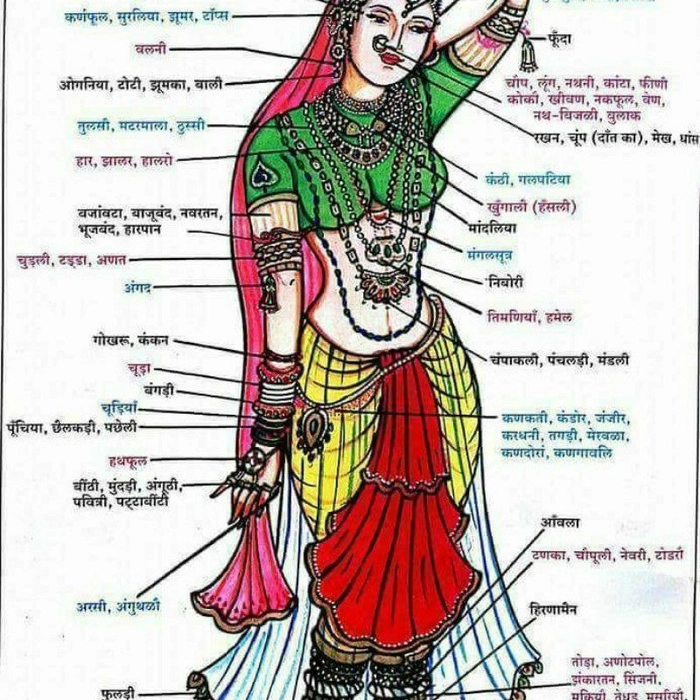 कर्णफूल, सुरलिया, झूमर, टॉप्स
वलनी
ओगनिया, टोटी, झूमका, बाली
तुलसी, मटरमाला, ठुस्सी
हार, झालर, हालरो
बजांवटा, बाजूबंद, नवरतन,
भूजबंद, हारपान
चुड़ली, टड्डा, अणत
अंगद
गोखरू, कंकन
चूड़ा
बंगड़ी
चूड़ियाँ
पूँचिया, छैलकड़ी, पछेली
हथफूल
बींठी, मुंदड़ी, अंगूठी,
पवित्री, पट्टाबींटी
अरसी, अंगुथळी
फुलड़ी
फूँदा
चोप, लूंग, नथनी, कांटा, फीणी
कोकौ, खीवण, नकफूल, वेण,
नथ-बिजळी, बुलाक
रखन, चूंप (दाँत का), मेख, धांस
कंठी, गलपटिया
खुँगाली (हँसली)
मांदलिया
मंगलसूत्र
निबोरी
तिमणियाँ, हमेल
चंपाकली, पंचलड़ी, मंडली
कणकती, कंडोर, जंजीर,
करधनी, तगड़ी, मेखळा,
कणदोरो, कणगावलि
आँवला
टणका, चौपूली, नेवरी, टोडरौ
हिरणामैन
तोड़ा, अणोटपोल,
झंकारतन, सिंजनी,